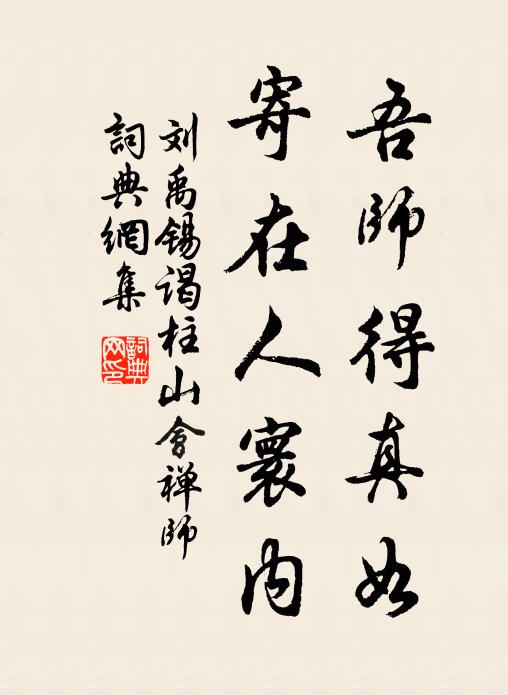 吾師得真如
寄在人寰内
刘禹锡谒柱山會禅師
詞典網集
詞典网印